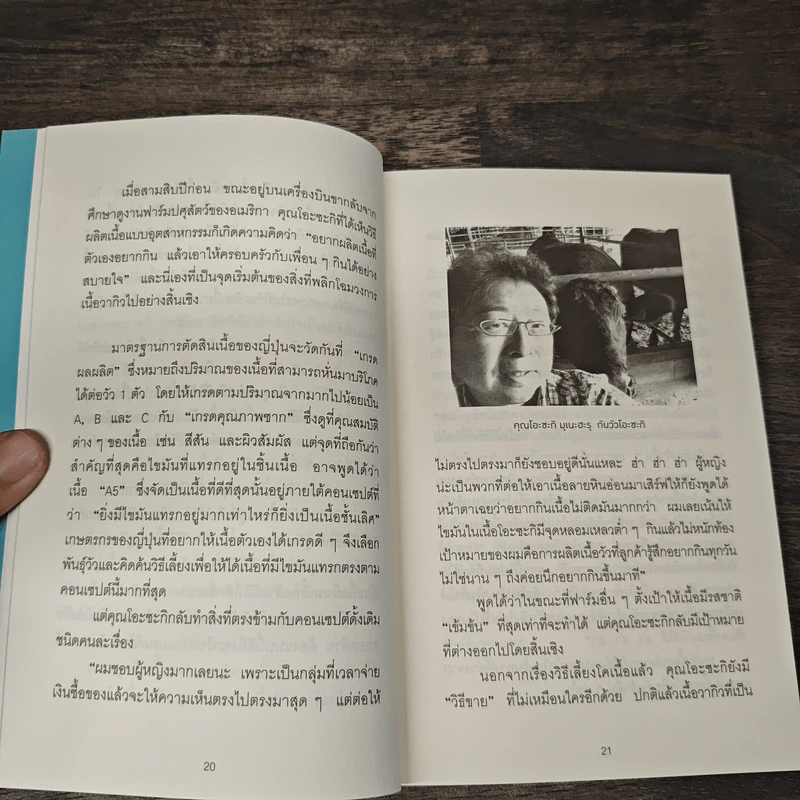 เมื่อสามสิบปีก่อน ขณะอยู่บนเครื่องบินขากลับจาก
ศึกษาดูงานฟาร์มปศุสัตว์ของอเมริกา คุณโอะซะกิที่ได้เห็นวิธี
ผลิตเนื้อแบบอุตสาหกรรมก็เกิดความคิดว่า “อยากผลิตเนื้อที่
ตัวเองอยากกิน แล้วเอาให้ครอบครัวกับเพื่อน ๆ กินได้อย่าง
สบายใจ” และนี่เองที่เป็นจุดเริ่มต้นของสิ่งที่พลิกโฉมวงการ
เนื้อวากิวไปอย่างสิ้นเชิง
มาตรฐานการตัดสินเนื้อของญี่ปุ่นจะวัดกันที่ “เกรด
ผลผลิต” ซึ่งหมายถึงปริมาณของเนื้อที่สามารถหั่นมาบริโภค
ได้ต่อวัว 1 ตัว โดยให้เกรดตามปริมาณจากมากไปน้อยเป็น
A, B และ C กับ “เกรดคุณภาพซาก” ซึ่งดูที่คุณสมบัติ
ต่าง ๆ ของเนื้อ เช่น สีสัน และผิวสัมผัส แต่จุดที่ถือกันว่า
สำคัญที่สุดคือไขมันที่แทรกอยู่ในชิ้นเนื้อ อาจพูดได้ว่า
เนื้อ “A5” ซึ่งจัดเป็นเนื้อที่ดีที่สุดนั้นอยู่ภายใต้คอนเซปต์ที่
ว่า “ยิ่งมีไขมันแทรกอยู่มากเท่าไหร่ก็ยิ่งเป็นเนื้อชั้นเลิศ”
เกษตรกรของญี่ปุ่นที่อยากให้เนื้อตัวเองได้เกรดดี ๆ จึงเลือก
พันธุ์วัวและคิดค้นวิธีเลี้ยงเพื่อให้ได้เนื้อที่มีไขมันแทรกตรงตาม
คอนเซปต์นี้มากที่สุด
แต่คุณโอะซะกิกลับทำสิ่งที่ตรงข้ามกับคอนเซปต์ดั้งเดิม
ชนิดคนละเรื่อง
“ผมชอบผู้หญิงมากเลยนะ เพราะเป็นกลุ่มที่เวลาจ่าย
เงินซื้อของแล้วจะให้ความเห็นตรงไปตรงมาสุด ๆ แต่ต่อให้
20
คุณโอะซะกิ มุเนะฮะรุ กับวัวโอะซะกิ
ไม่ตรงไปตรงมาก็ยังชอบอยู่ดีนั่นแหละ ฮ่า ฮ่า ฮ่า ผู้หญิง
น่ะเป็นพวกที่ต่อให้เอาเนื้อลายหินอ่อนมาเสิร์ฟให้ก็ยังพูดได้
หน้าตาเฉยว่าอยากกินเนื้อไม่ติดมันมากกว่า ผมเลยเน้นให้
ไขมันในเนื้อโอะซะกิมีจุดหลอมเหลวต่ำ ๆ กินแล้วไม่หนักท้อง
เป้าหมายของผมคือการผลิตเนื้อวัวที่ลูกค้ารู้สึกอยากกินทุกวัน
ไม่ใช่นาน ๆ ถึงค่อยนึกอยากกินขึ้นมาที”
พูดได้ว่าในขณะที่ฟาร์มอื่น ๆ ตั้งเป้าให้เนื้อมีรสชาติ
“เข้มข้น” ที่สุดเท่าที่จะทำได้ แต่คุณโอะซะกิกลับมีเป้าหมาย
ที่ต่างออกไปโดยสิ้นเชิง
นอกจากเรื่องวิธีเลี้ยงโคเนื้อแล้ว คุณโอะซะกิยังมี
“วิธีขาย” ที่ไม่เหมือนใครอีกด้วย ปกติแล้วเนื้อวากิวที่เป็น
21